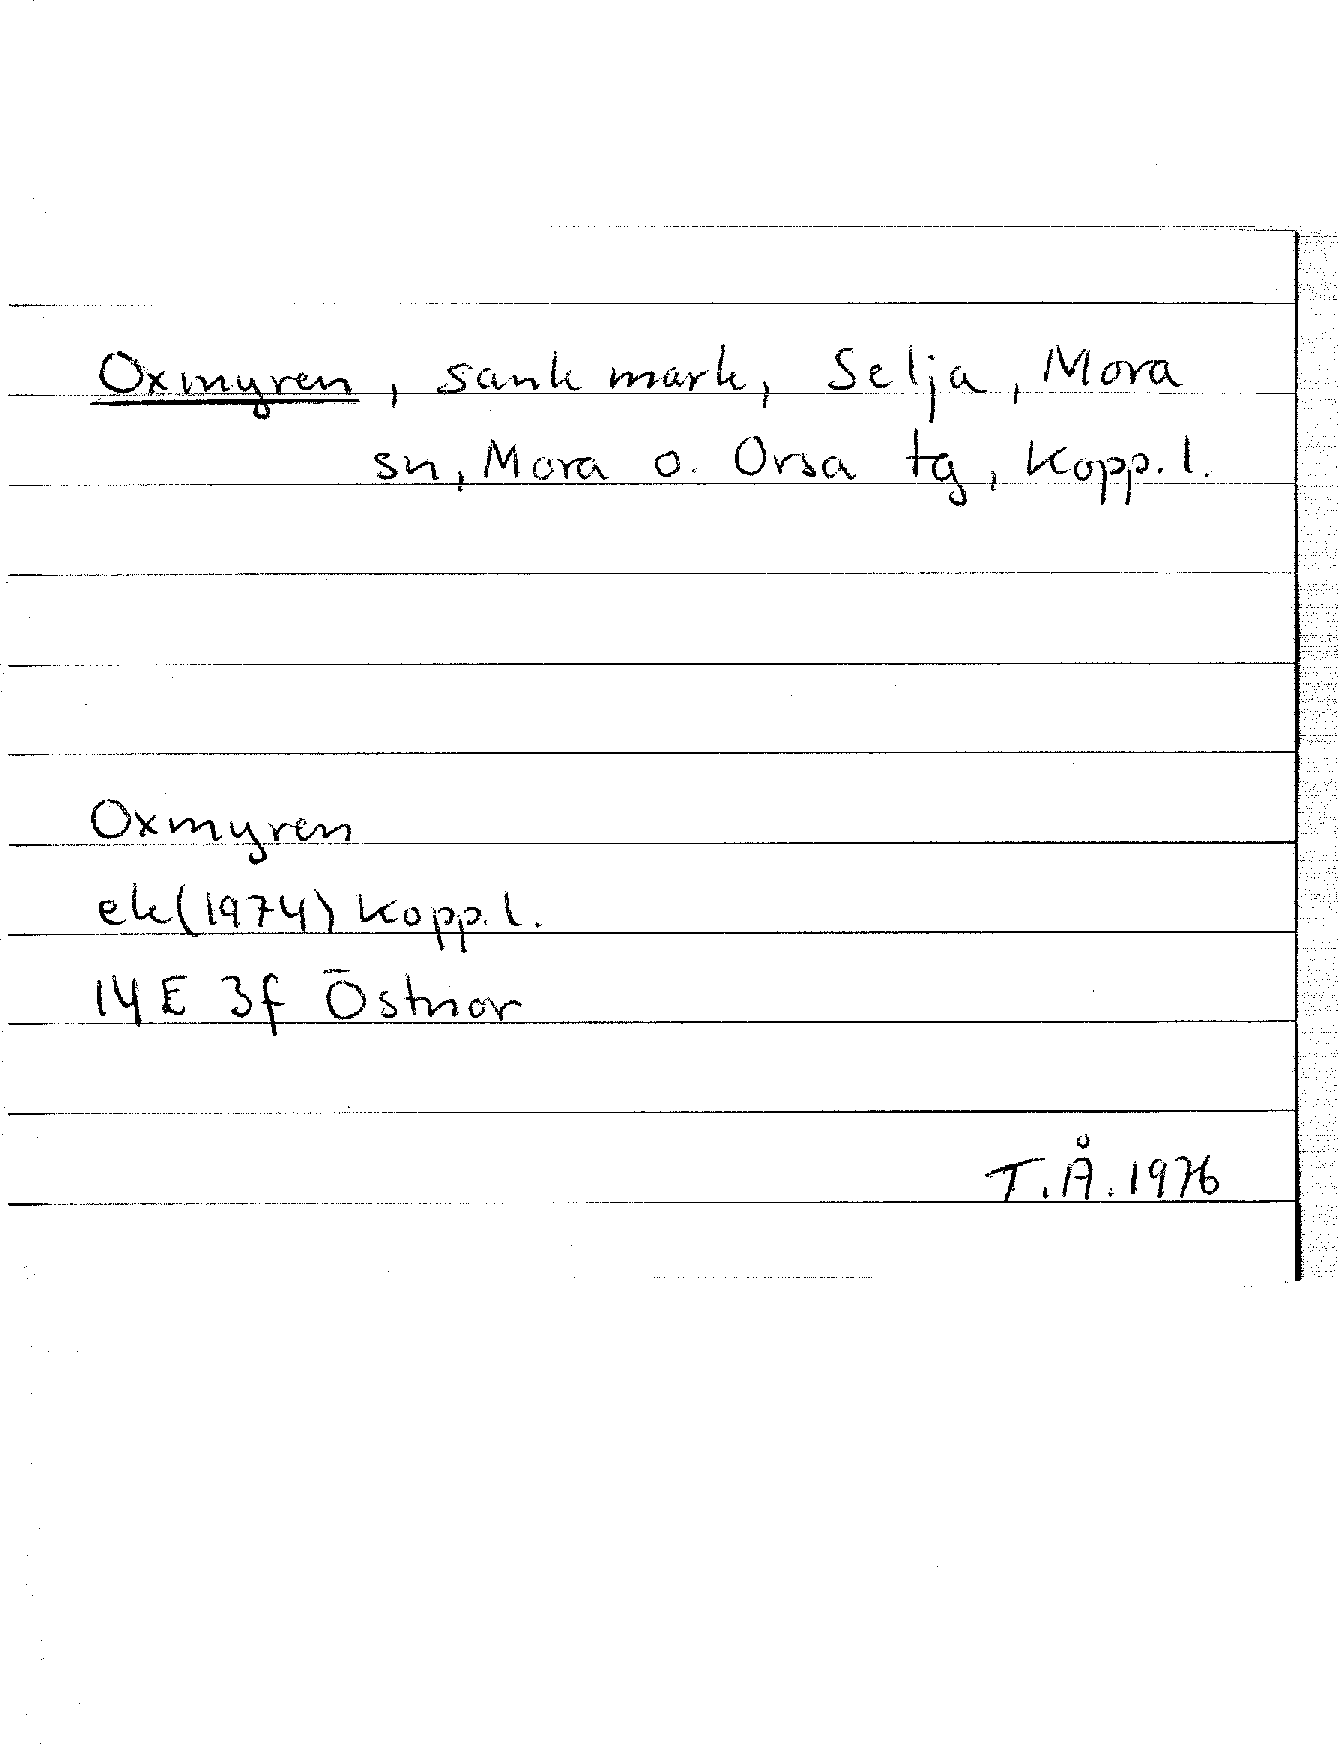 Oxmyren, sank mark, Selja, Mora
sn, Mora o. Orsa tg, Kopp. l.
Oxmyren
ek (1974) Kopp. l.
14E 3f Östnor
T.Å. 1976